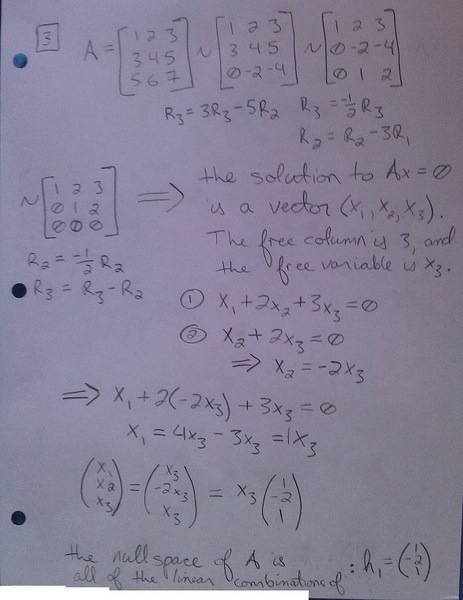 3
A = [1 2 3; 3 4 5; 5 6 7] ~ [1 2 3; 3 4 5; 0 -2 -4] ~ [1 2 3; 0 -2 -4; 0 1 2]
R3 = 3R3 - 5R2 R3 = -1/2 R3
R2 = R2 - 3R1
~ [1 2 3; 0 1 2; 0 0 0] ⟹ the solution to Ax = 0
is a vector (x1, x2, x3).
The free column is 3, and
the free variable is x3.
R2 = -1/2 R2
R3 = R3 - R2
① x1 + 2x2 + 3x3 = 0
② x2 + 2x3 = 0
⟹ x2 = -2x3
⟹ x1 + 2(-2x3) + 3x3 = 0
x1 = 4x3 - 3x3 = 1x3
(x1; x2; x3) = (x3; -2x3; x3) = x3 (1; -2; 1)
the null space of A is
all of the linear combinations of : h1 = (1; -2; 1)